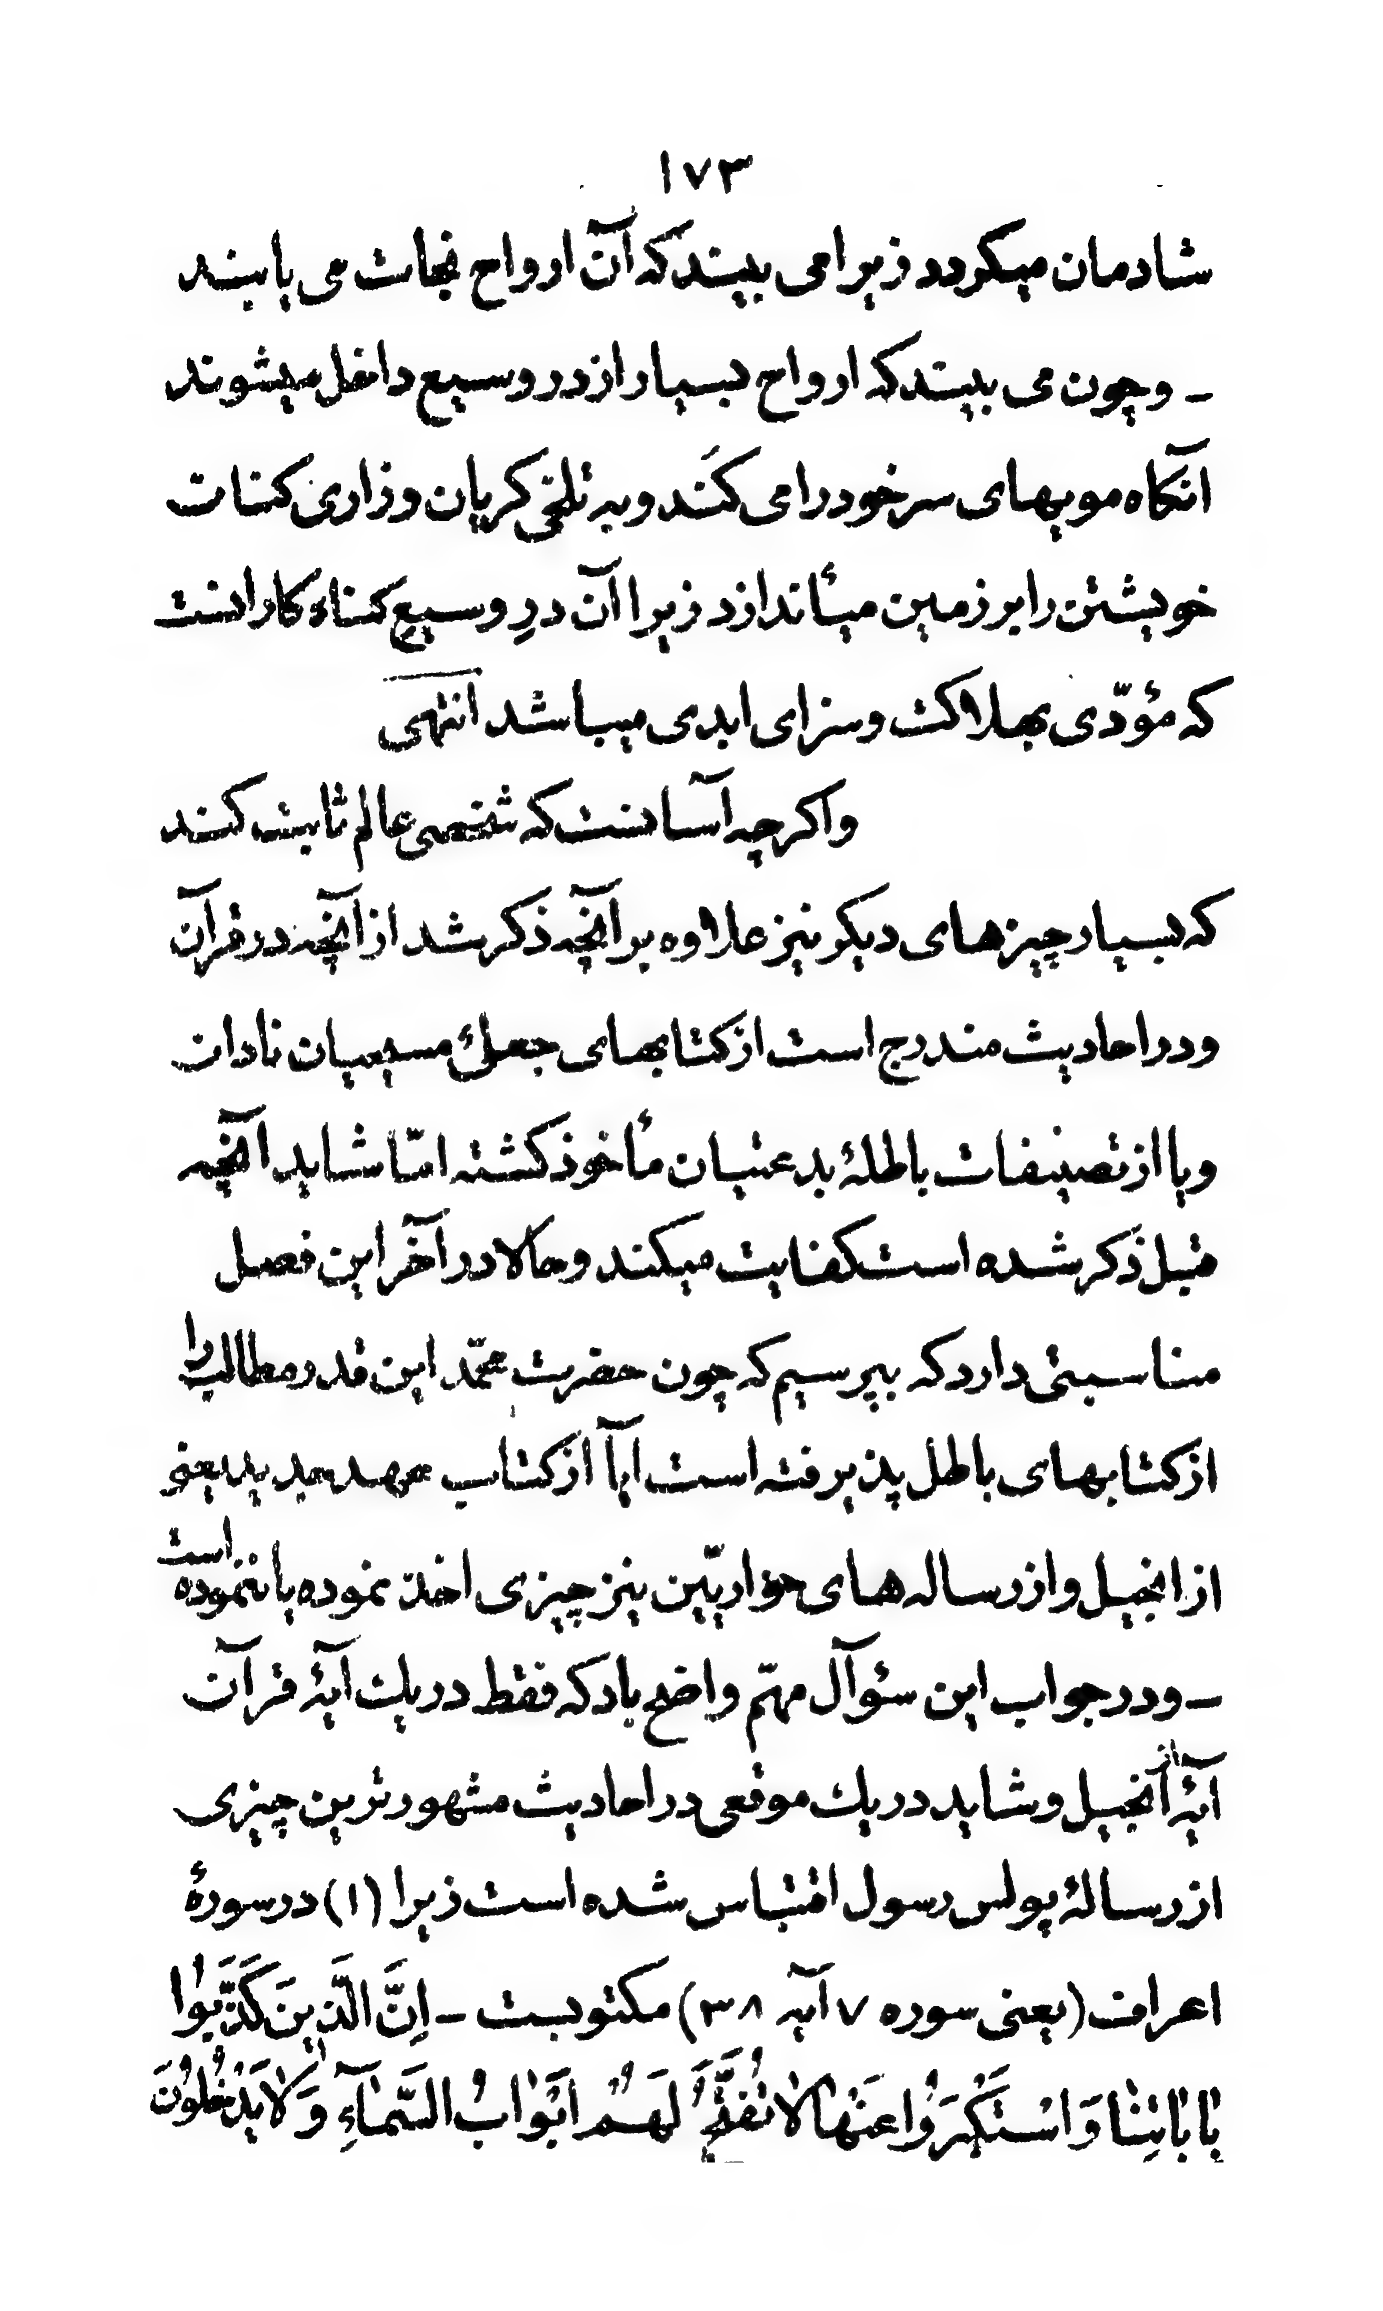 ١٧٣
شادمان میکردد زیرا می بیند که آن ارواح نجات می یابند
ـ وچون می بیند که ارواح بسیار از در وسیع داخل میشوند
آنکاه مویهای سر خود را می کَند وبه تلخی کریان وزاری کنان
خویشتن را بر زمین میأندازد زیرا آن درِ وسیعِ کناه کارانست
که مؤدّی بهلاکت وسزای ابدی میباشد انتهی
واکرچه آسانست که شخصی عالم ثابت کند
که بسیار چیزهای دیکر نیز علاوه بر آنچه ذکر شد از آنچه در قرآن
ودر احادیث مندرج است از کتابهای جعلیٔ مسیحیان نادان
ویا از تصنیفات باطلهٔ بدعتیان مأخوذ کشته امّا شاید آنچه
قبل ذکر شده است کفایت میکند وحالا در آخر این فصل
مناسبتی دارد که بپرسیم که چون حضرت محمّد این قدر مطالب را
از کتابهای باطل پذیرفته است آیا از کتاب عهد جدید یعنی
از انجیل واز رساله های حواریّین نیز چیزی اخذ نموده یا ننموده است
ـ ودر جواب این سؤآل مهمّ واضح باد که فقط در یك آیهٔ قرآن
آیهٔ از انجیل وشاید در یك موقعی در احادیث مشهورترین چیزی
از رسالهٔ پولس رسول اقتباس شده است زیرا (١) در سورهٔ
اعراف (یعنی سوره ٧ آیه ٣٨) مکتوبست ـ اِنَّ الَّذِینَ کَذَّبُوا
بِاٰیاتِنٰا وَاسْتَکْبَرُوا عَنْهٰا لاٰ تُفَتَّحُ لَهُمْ اَبْوٰابُ السَّمٰآءِ وَلاٰ یَدْخُلُونَ